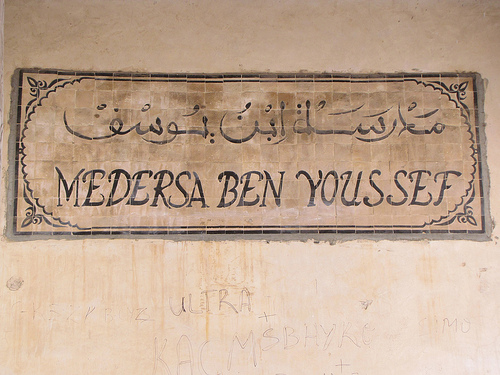 مَدْرَسَـة اِبْنُ يُوسُفْ
MEDERSA BEN YOUSSEF
ULTRA
KACMSBHYKO
TIMO